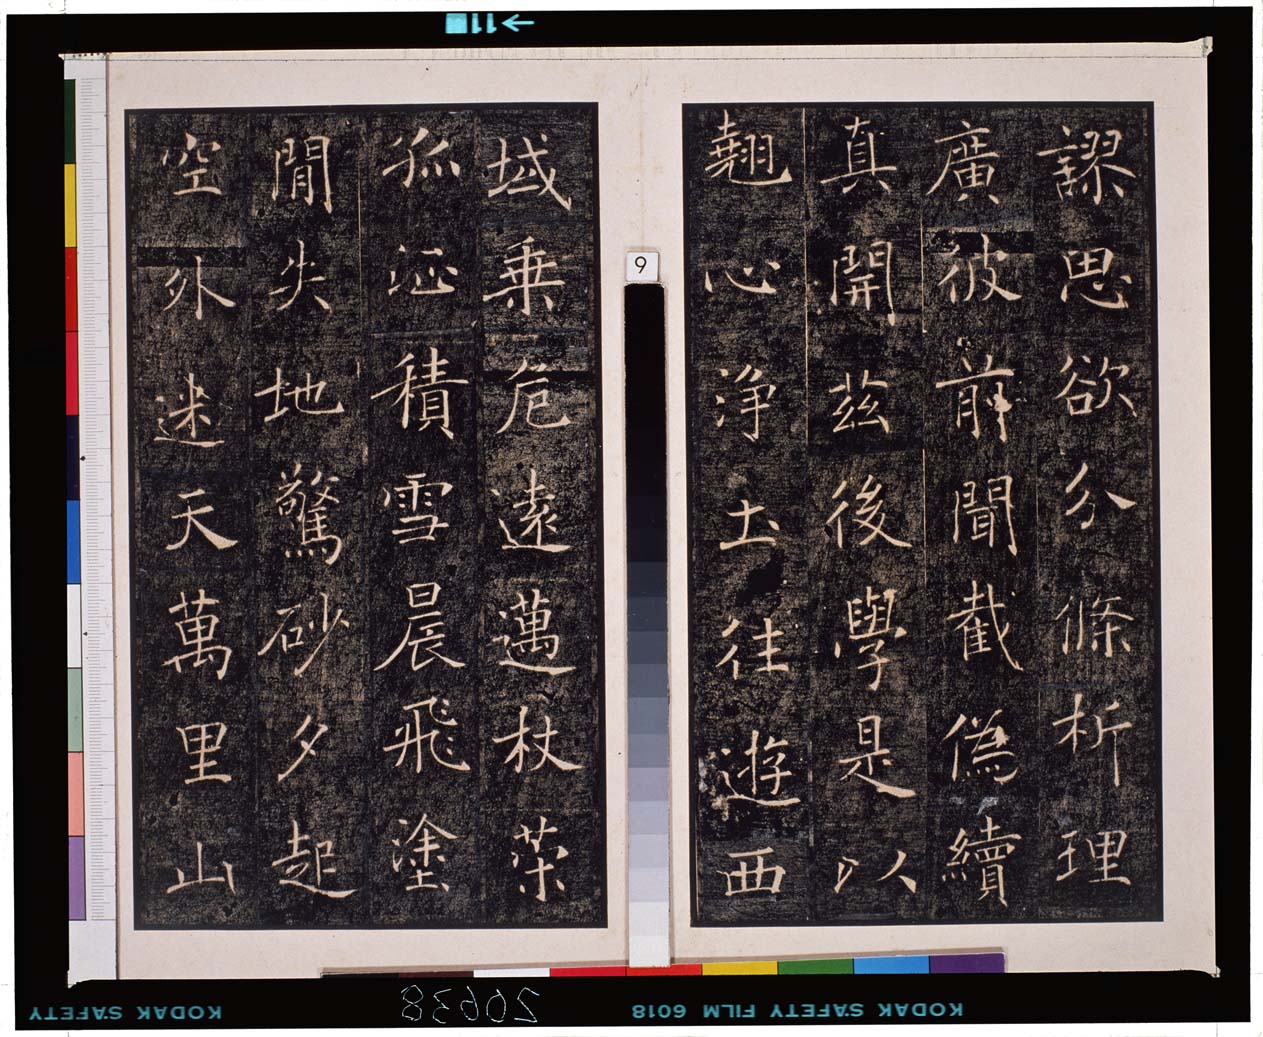 謬思欲分條析理
廣彼前聞截偽續
真開茲後學是以
翹心淨土往遊西
域乗危遠邁杖策
孤征積雪晨飛塗
閒失地驚砂夕起
空外迷天萬里山
9
KODAK SAFETY FILM 6018
KODAK SAFETY
20638